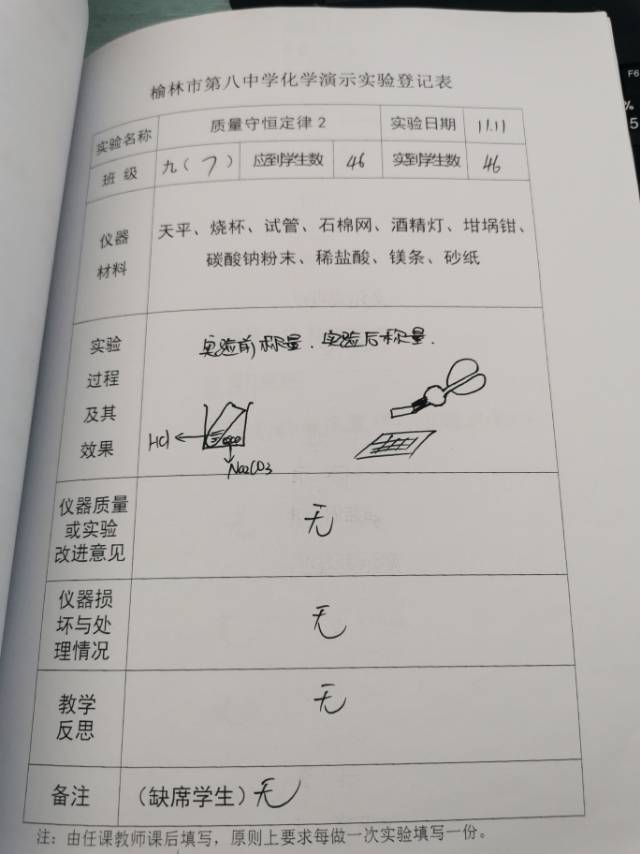 榆林市第八中学化学演示实验登记表
实验名称 质量守恒定律2 实验日期 11.11
班 级 九(7) 应到学生数 46 实到学生数 46
仪器
材料
天平、烧杯、试管、石棉网、酒精灯、坩埚钳、
碳酸钠粉末、稀盐酸、镁条、砂纸
实验
过程
及其
效果
实验前称量.实验后称量.
HCl
Na2CO3
仪器质量
或实验
改进意见
无
仪器损
坏与处
理情况
无
教学
反思
无
备注 (缺席学生)无
注:由任课教师课后填写,原则上要求每做一次实验填写一份。
F6
%
5